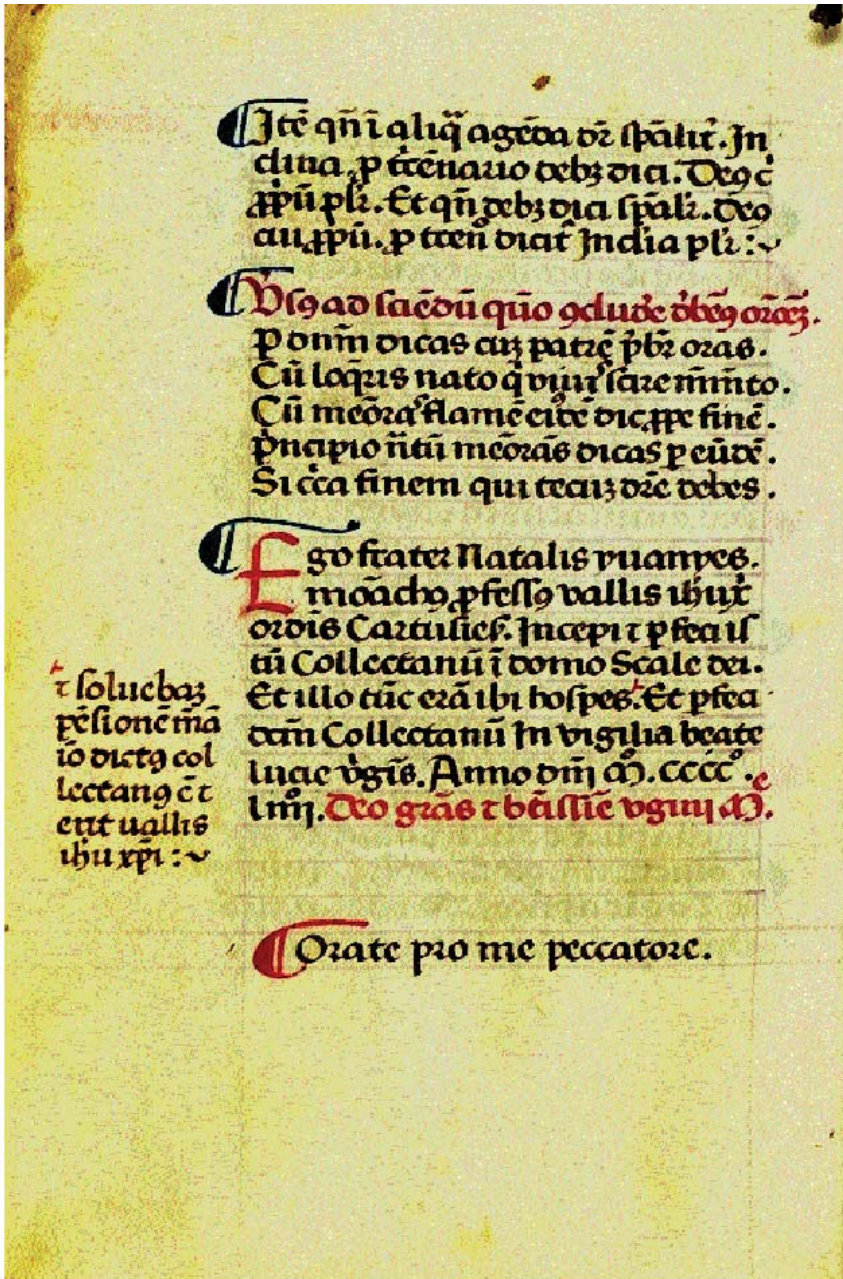 Itē qn̄ ī aliq̄ agēda dr̄ spāliť. In
clina, ꝑ tr̄cēnario debꝫ dici. Deꝰ cꝰ
ꝓpū plr̄. Et qn̄ debꝫ dici spālr̄. Deꝰ
cui ꝓpū. ꝑ tcēn̄ dicit̄ Inclīa plr̄ :~
ad sciēdū quō ꝯcludē dēbēꝰ
P dnm̄ dicas cuꝫ patrē p̄br̄ oras.
Cū loq̄ris nato q̄ viuit scire mm̄to.
Cū meōras flamē eiꝰdē dic ꝓpe finē.
Pͥncipio n̄tū meōrās dicas ꝑ eūdē.
Si cc̄a finem qui tecuꝫ dr̄e debes.
Ego frater Natalis yuanyes.
moācꝰ ꝓfessꝰ vallis ihū xr̄
ordīs Cartusieñ. Incepi ⁊ ꝑfeci is
tū Collectanū ī domo Scale dei.
Et illo tūc erā ibi hospes. Et ꝑfeci
dcm̄ Collectanū In vigilia beate
lucie v̓gīs. Anno dn̄i M̊. CCCC̊.
lmͦ̄j. Deo grās ⁊ btīssīe vgini Mͤ.
⁊ soluebaꝫ
pēsionē m̄ā
īo dictꝰ col
lectanꝰ ē ⁊
erit uallis
ihū xp̄i :~
Orate pro me peccatore.